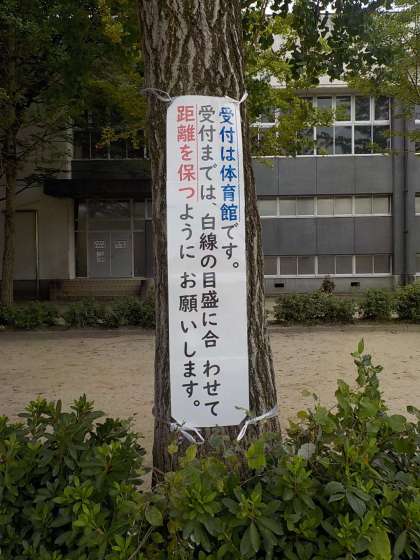 受付は体育館です。
受付までは、白線の目盛に合わせて
距離を保つようにお願いします。